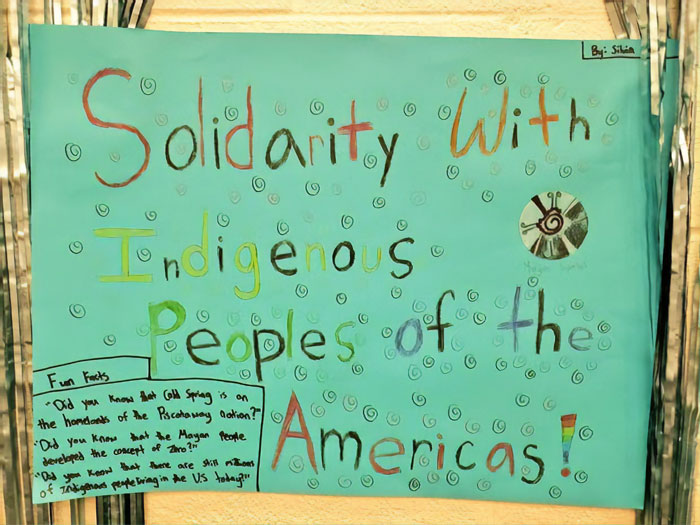 By: Silvia
Solidarity With
Indigenous
Peoples of the
Americas!
Mayan Symbol
Fun Facts
"Did you know that Cold Spring is an
the homelands of the Piscataway Nation?"
"Did you know that the Mayan People
developed the concept of Zero?"
"Did you know that there are still millions
of Indigenous people living in the U.S today?"